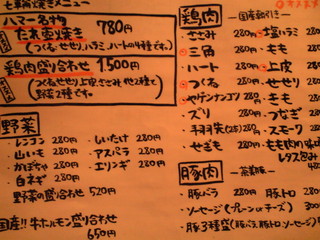 七輪焼きメニュー
ハマー名物
たれ壺焼き 780円
(つくね、せせり、ハラミ、ハートの4種です。)
鶏肉盛り合わせ 1,500円
(つくね、せせり、上皮、ささみ、他2種で
野菜2種です。)
野菜
・レンコン 280円 ・しいたけ 280円
・山いも 280円 ・アスパラ 280円
・かぼちゃ 280円 ・エリンギ 280円
・白ネギ 280円
野菜の盛り合わせ 520円
国産!!牛ホルモン盛り合わせ
650円
鶏肉
・ささみ 280円 ・塩ハラミ 280円
・三角 280円 ・もも 280円
・ハート 280円 ・上皮 280円
・つくね 280円 ・せせり 280円
・ヤゲンナンコツ 280円 ・もも
・ズリ 280円 ・つなぎ 280円
・手羽先(2本) 280円 ・スモーク
・せぎも 280円 ・もも肉の味噌
レタス包み
豚肉
・豚バラ 280円 ・豚トロ 280円
・ソーセージ(プレーンorチーズ) 300円
・豚3種盛(豚バラ、豚トロ、ソーセージ)